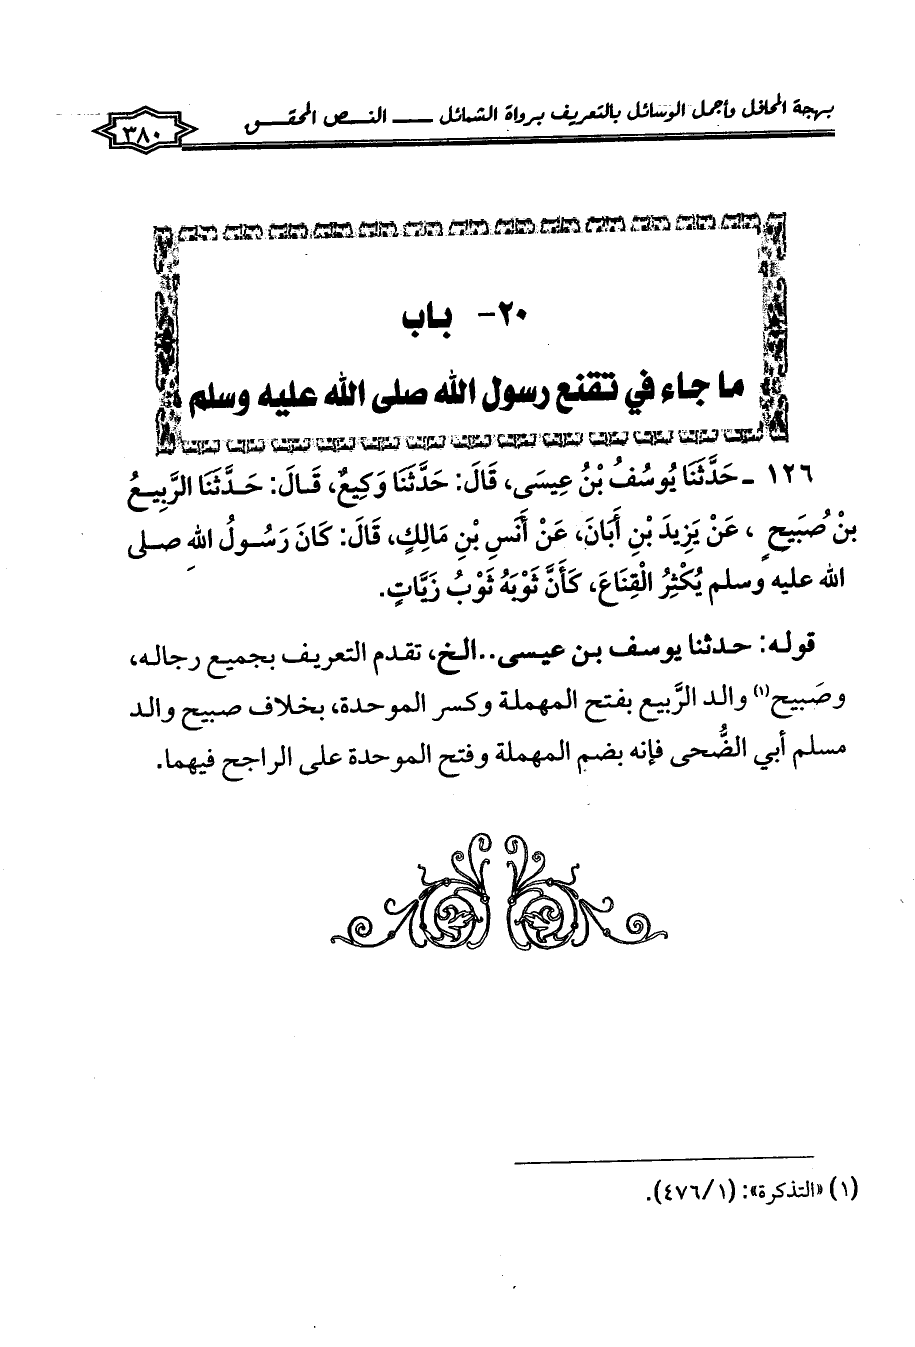 بهجة المحافل وأجمل الوسائل بالتعريف برواة الشمائل ــــ النــص المحقــق
٣٨٠
٢٠- باب
ما جاء في تقنع رسول الله صلى الله عليه وسلم
١٢٦ - حَدَّثَنَا يُوسُفُ بْنُ عِيسَى، قَالَ: حَدَّثَنَا وَكِيعٌ، قَالَ: حَدَّثَنَا الرَّبِيعُ
بْنُ صُبَيحٍ ، عَنْ يَزِيدَ بْنِ أَبَانَ، عَنْ أَنَسِ بْنِ مَالِكٍ، قَالَ: كَانَ رَسُولُ اللهِ صلى
الله عليه وسلم يُكْثِرُ الْقِنَاعَ، كَأَنَّ ثَوْبَهُ ثَوْبُ زَيَّاتٍ.
قوله: حدثنا يوسف بن عيسى..الخ، تقدم التعريف بجميع رجاله،
وصَبيح(١) والد الرَّبيع بفتح المهملة وكسر الموحدة، بخلاف صبيح والد
مسلم أبي الضُّحى فإنه بضم المهملة وفتح الموحدة على الراجح فيهما.
(١) «التذكرة»: (٤٧٦/١).